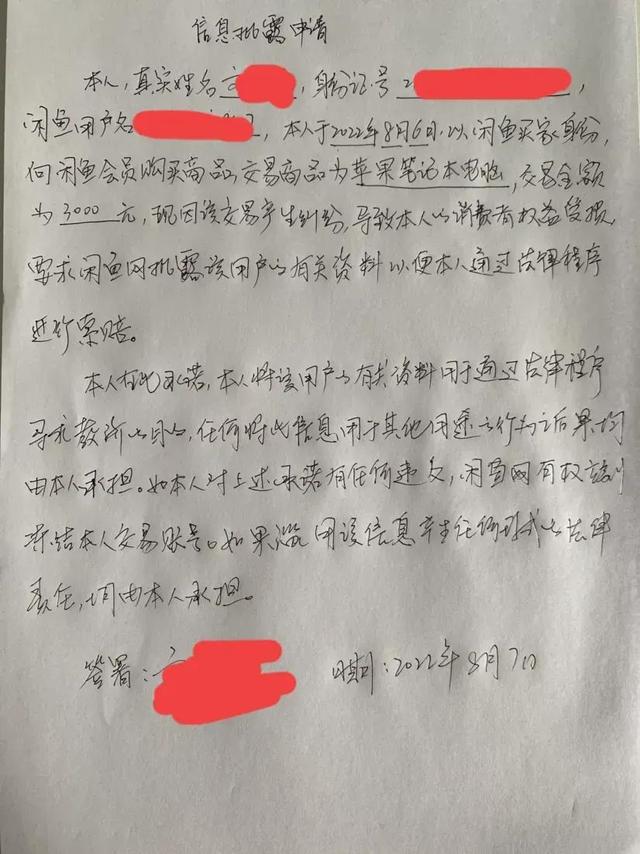 信息批露申请
本人,真实姓名,身份证号2,
闲鱼用户名,本人于2022年8月6日,以闲鱼买家身份,
向闲鱼会员购买商品,交易商品为苹果笔记本电脑,交易金额
为3000元,现因该交易产生纠纷,导致本人的消费者权益受损,
要求闲鱼网批露该用户的有关资料以便本人通过法律程序
进行索赔。
本人在此承诺,本人将该用户的有关资料用于通过法律程序
寻求救济的目的,任何将此信息用于其他用途的行为之后果均
由本人承担。如本人对上述承诺有任何违反,闲鱼网有权立刻
冻结本人交易账号。如果滥用该信息产生任何形式的法律
责任,均由本人承担。
签署: 日期:2022年8月7日